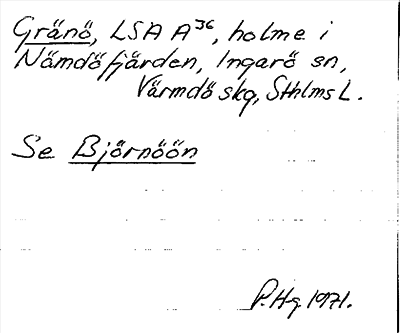 Gränö, LSA A³⁶, holme i
Nämdöfjärden, Ingarö sn,
Värmdö skg, Sthlms L.
Se Björnöön
P.Hg. 1971.